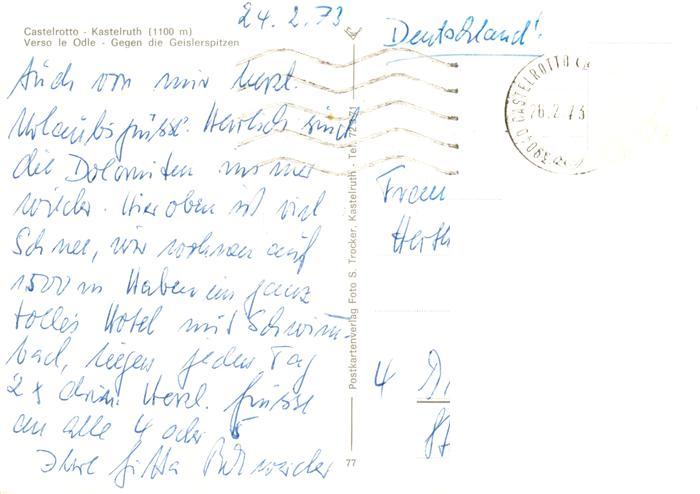 24.2.73
Castelrotto - Kastelruth (1100 m)
Verso le Odle - Gegen die Geislerspitzen
Deutschland!
CASTELROTTO
26.2.73
39040
Auch von mir herzl.
Urlaubsgrüsse. Herrlich sind
die Dolomiten immer
wieder. Hier oben ist viel
Schnee, wir wohnen auf
1500 m Haben ein ganz
tolles Hotel mit Schwimm-
bad, liegen jeden Tag
2x drin. Herzl. Grüsse
an alle 4 oder 5
Ihre Gitta
Postkartenverlag Foto S. Trocker, Kastelruth - Tel.
77
Frau
Herth
4